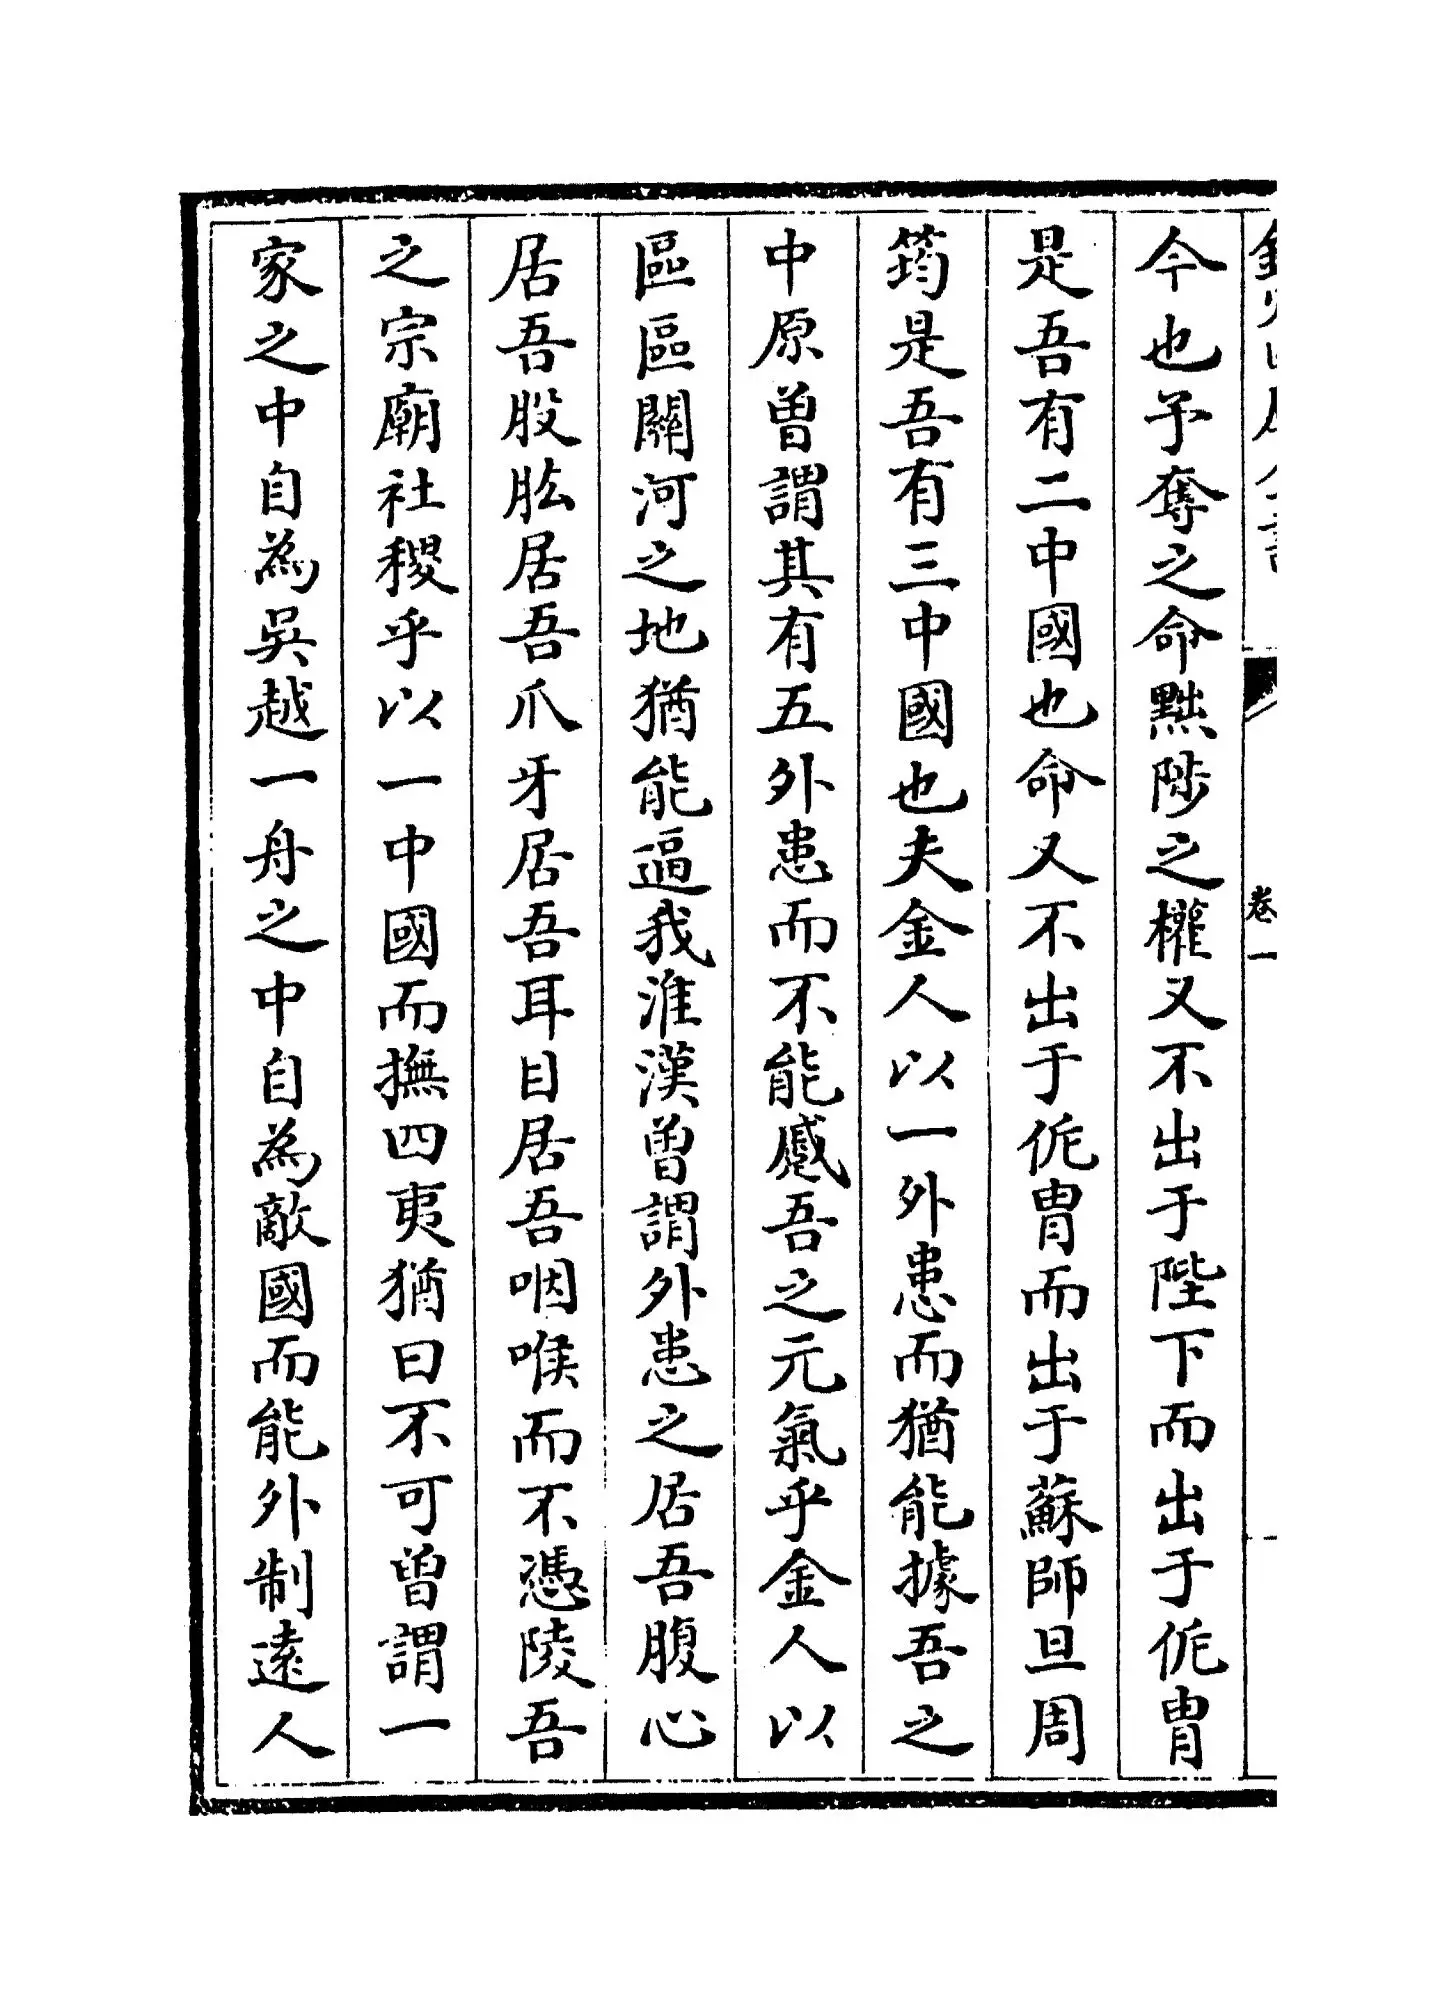 今也予奪之命黜陟之權又不出于陛下而出于侂冑
是吾有二中國也命又不出于侂冑而出于蘇師旦周
筠是吾有三中國也夫金人以一外患而猶能據吾之
中原曽謂其有五外患而不能慼吾之元氣乎金人以
區區關河之地猶能逼我淮漢曽謂外患之居吾腹心
居吾股肱居吾爪牙居吾耳目居吾咽喉而不憑陵吾
之宗廟社稷乎以一中國而撫四夷猶曰不可曽謂一
家之中自為吳越一舟之中自為敵國而能外制逺人
卷一